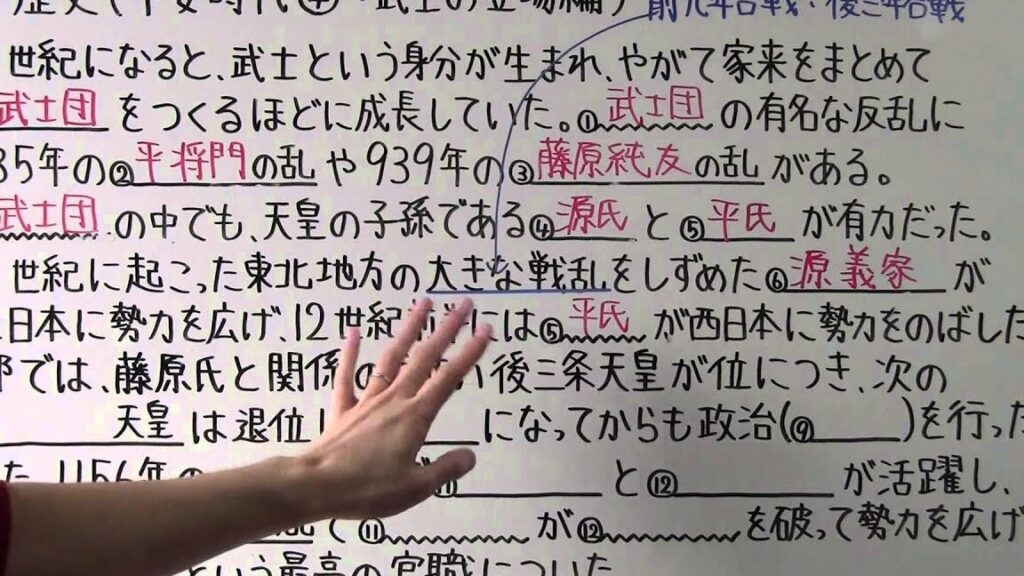 歴史(平安時代④・武士の立場編) 前九年合戦・後三年合戦
世紀になると、武士という身分が生まれ、やがて家来をまとめて
武士団をつくるほどに成長していた。①武士団の有名な反乱に
35年の②平将門の乱や939年の③藤原純友の乱がある。
武士団の中でも、天皇の子孫である④源氏と⑤平氏が有力だった。
世紀に起こった東北地方の大きな戦乱をしずめた⑥源義家が
日本に勢力を広げ、12世紀には⑤平氏が西日本に勢力をのばした
では、藤原氏と関係の い後三条天皇が位につき、次の
天皇は退位 になってからも政治(⑨ )を行った
1156年の ⑪ と⑫ が活躍し、
て⑪ が⑫ を破って勢力を広げ
という最高の官職についた